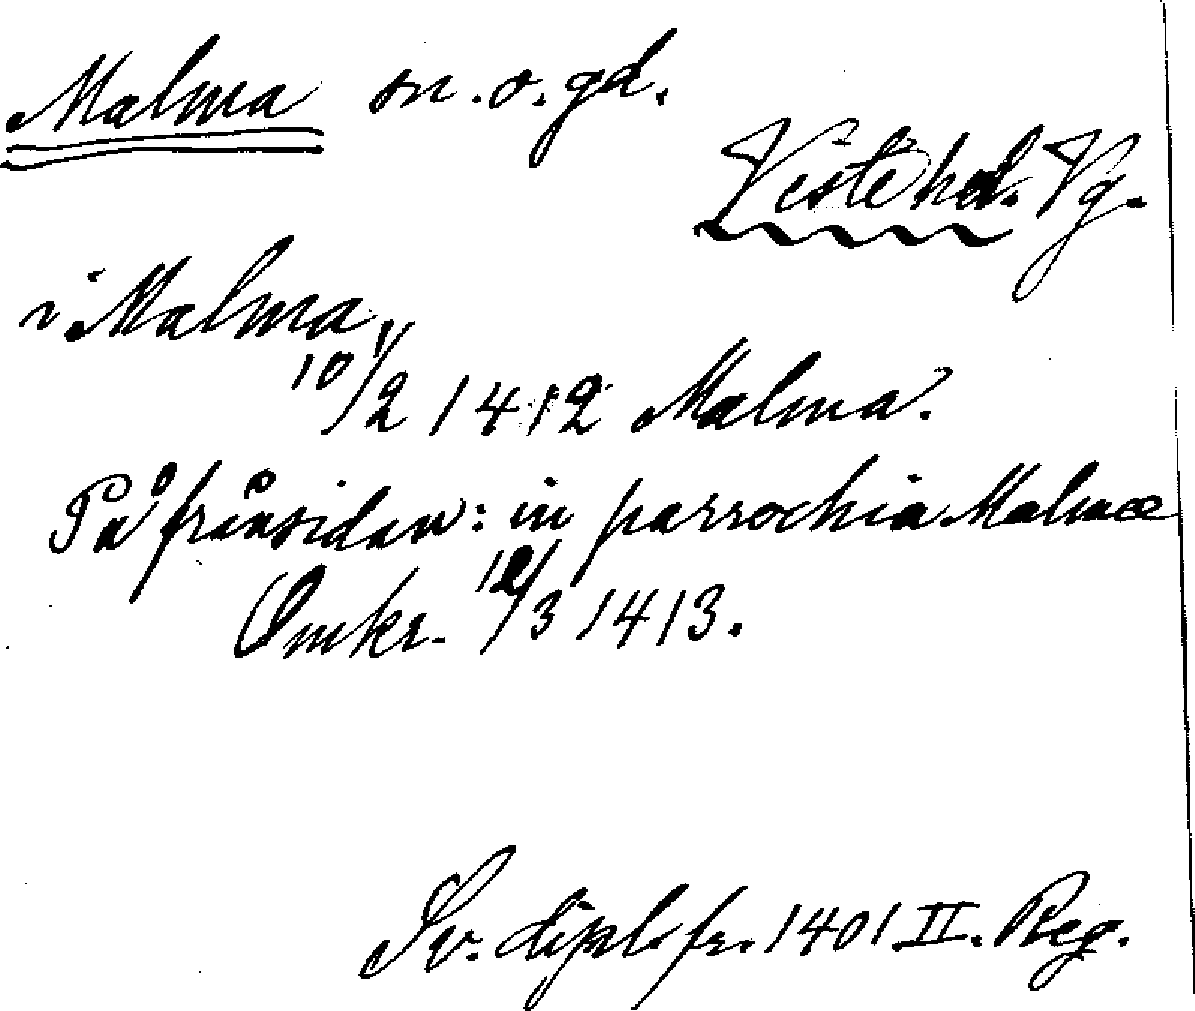 Malma sn. o. gd.
Viste hd. Vg.
i Malma
10/2 1412 Malma.
På frånsidan: in parrochia Malmæ
Omkr. 12/3 1413.
Sv. dipl. fr. 1401 II. Reg.